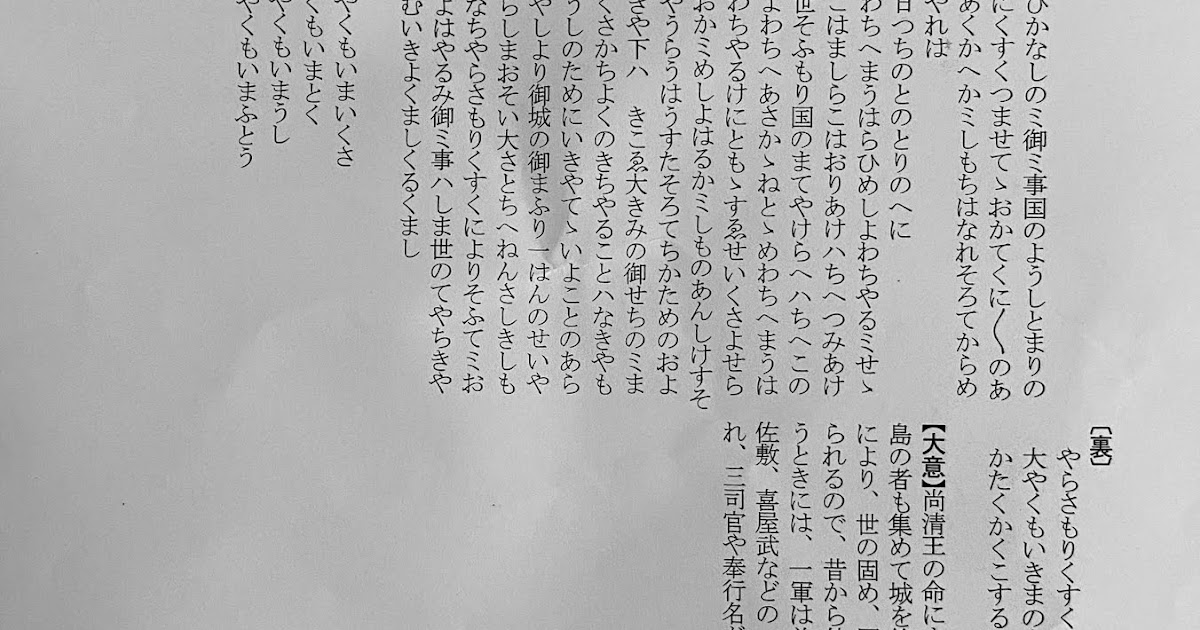 ひかなしのミ御ミ事国のようしとまりの
にくすくつませてゝおかてくに〱のあ
あくかへかミしもちはなれそろてからめ
やれは
日つちのとのとりのへに
わちへまうはらひめしよわちやるミせゝ
こはましらこはおりあけハちへつみあけ
世そふもり国のまてやけらへハちへこの
よわちへあさかゝねとゝめわちへまうは
わちやるけにともゝすゑせいくさよせら
おかミめしよはるかミしものあんしけすそ
やうらうはうすたそろてちかためのおよ
きや下ハ　きこゑ大きみの御せちのミま
くさかちよくのきちやることハなきやも
うしのためにいきやてゝいよことのあら
やしより御城の御まふり一はんのせいや
らしまおそい大さとちへねんさしきしも
なちやらさもりくすくによりそふてミお
よはやるみ御ミ事ハしま世のてやちきや
むいきよくましくるくまし
やくもいまいくさ
くもいまとく
やくもいまうし
やくもいまふとう
〔裏〕
やらさもりくすく
大やくもいきまの
かたくかくこする
【大意】尚清王の命に
島の者も集めて城を
により、世の固め、
られるので、昔から
うときには、一軍は
佐敷、喜屋武などの
れ、三司官や奉行名が